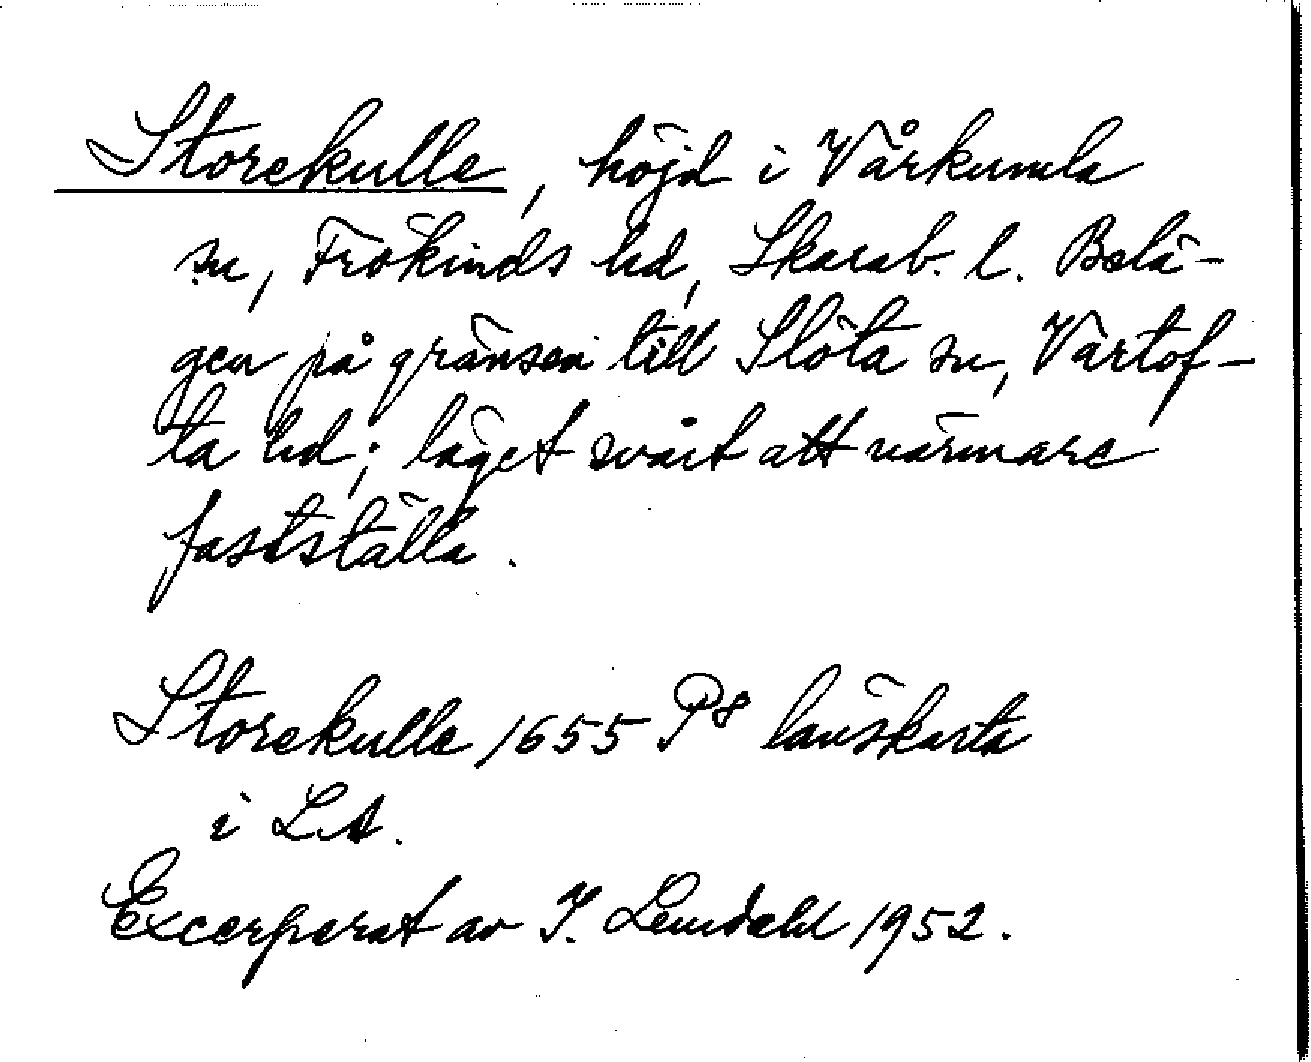 Storekulle, höjd i Vårkumla
sn, Frökinds hd, Skarab. l. Belä-
gen på gränsen till Slöta sn, Vartof-
ta hd; läget svårt att närmare
fastställa.
Storekulle 1655 P8 länskarta
i LA.
Excerperat av I. Lundahl 1952.